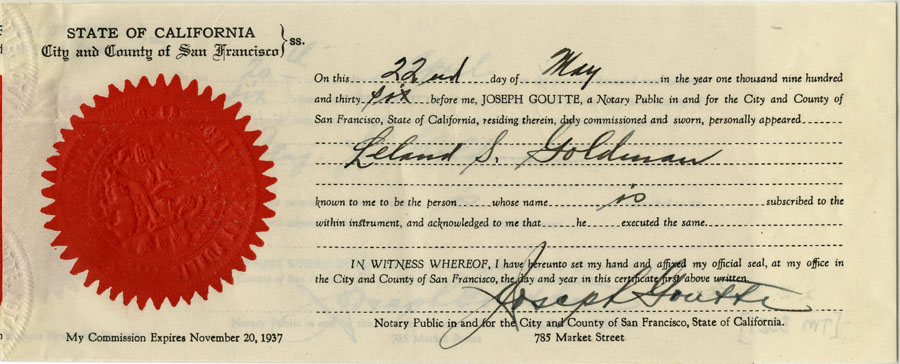 STATE OF CALIFORNIA
City and County of San Francisco } ss.
On this 22nd day of May in the year one thousand nine hundred
and thirty six before me, JOSEPH GOUTTE, a Notary Public in and for the City and County of
San Francisco, State of California, residing therein, duly commissioned and sworn, personally appeared
Leland S. Goldman
known to me to be the person whose name is subscribed to the
within instrument, and acknowledged to me that he executed the same
IN WITNESS WHEREOF, I have hereunto set my hand and affixed my official seal, at my office in
the City and County of San Francisco, the day and year in this certificate first above written.
Joseph Goutte
Notary Public in and for the City and County of San Francisco, State of California.
785 Market Street
My Commission Expires November 20, 1937